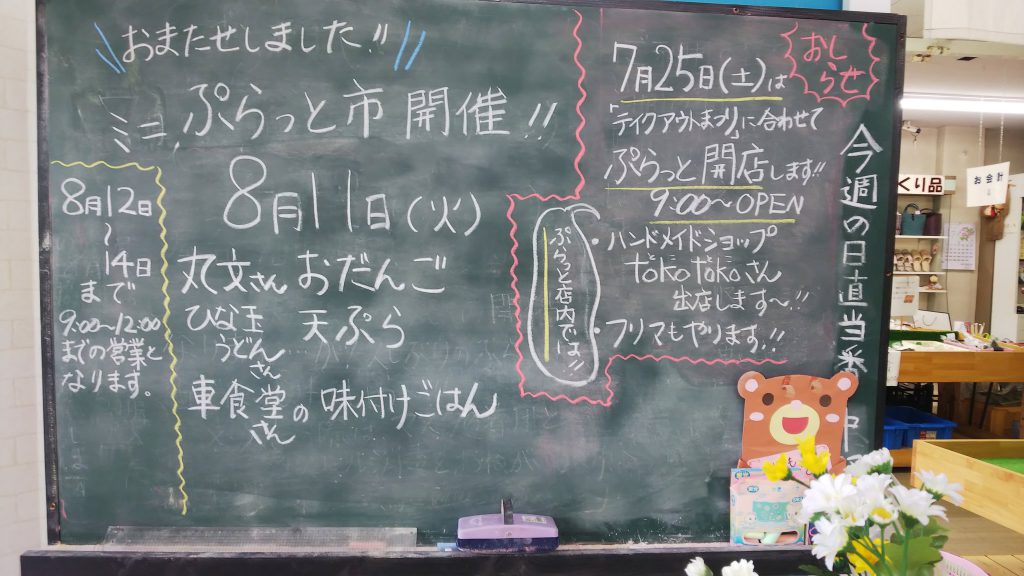 おまたせしました!!
ぷらっと市 開催!!
8月11日(火)
丸文さん おだんご
ひな玉うどんさん 天ぷら
車食堂さんの 味付けごはん
8月12日
~
14日
まで
9:00~12:00
までの営業と
なります。
おしらせ
7月25日(土)は
「テイクアウトまつり」に合わせて
ぷらっと開店します!!
9:00~OPEN
ぷらっと店内では!!
・ハンドメイドショップ
tokotokoさん
出店します~!!
・フリマもやります!!
今週の日直当番
くり品
お会計